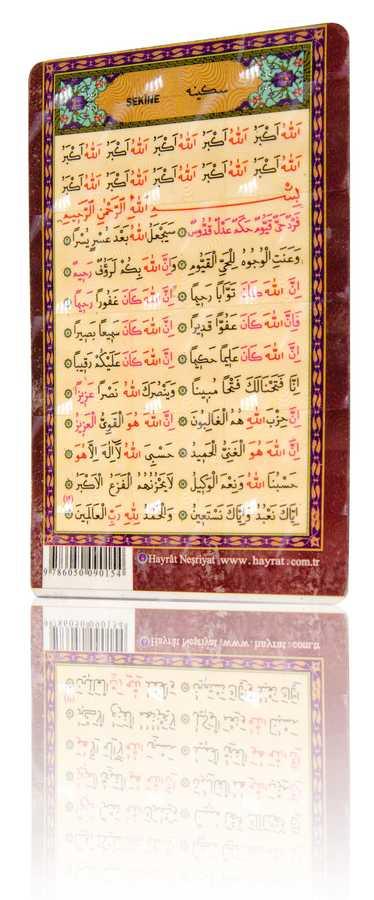 SEKİNE سكينه
اَللّٰهُ اَكْبَرُ اَللّٰهُ اَكْبَرُ اَللّٰهُ اَكْبَرُ اَللّٰهُ اَكْبَرُ اَللّٰهُ اَكْبَرُ
اَللّٰهُ اَكْبَرُ اَللّٰهُ اَكْبَرُ اَللّٰهُ اَكْبَرُ اَللّٰهُ اَكْبَرُ اَللّٰهُ اَكْبَرُ
بِسْمِ اللّٰهِ الرَّحْمٰنِ الرَّحِيمِ
فَرْدٌ حَىٌّ قَيُّومٌ حَكَمٌ عَدْلٌ قُدُّوسٌ سَيَجْعَلُ اللّٰهُ بَعْدَ عُسْرٍ يُسْرًا
وَعَنَتِ الْوُجُوهُ لِلْحَىِّ الْقَيُّومِ وَاِنَّ اللّٰهَ بِكُمْ لَرَؤُفٌ رَحِيمٌ
اِنَّ اللّٰهَ كَانَ تَوَّابًا رَحِيمًا اِنَّ اللّٰهَ كَانَ غَفُورًا رَحِيمًا
فَاِنَّ اللّٰهَ كَانَ عَفُوًّا قَدِيرًا اِنَّ اللّٰهَ كَانَ سَمِيعًا بَصِيرًا
اِنَّ اللّٰهَ كَانَ عَلِيمًا حَكِيمًا اِنَّ اللّٰهَ كَانَ عَلَيْكُمْ رَقِيبًا
اِنَّا فَتَحْنَا لَكَ فَتْحًا مُبِينًا وَيَنْصُرَكَ اللّٰهُ نَصْرًا عَزِيزًا
اِنَّ حِزْبَ اللّٰهِ هُمُ الْغَالِبُونَ اِنَّ اللّٰهَ هُوَ الْقَوِىُّ الْعَزِيزُ
اِنَّ اللّٰهَ هُوَ الْغَنِىُّ الْحَمِيدُ حَسْبِىَ اللّٰهُ لَا اِلٰهَ اِلَّا هُوَ
حَسْبُنَا اللّٰهُ وَنِعْمَ الْوَكِيلُ لَا يَحْزُنُهُمُ الْفَزَعُ الْاَكْبَرُ
اِيَّاكَ نَعْبُدُ وَاِيَّاكَ نَسْتَعِينُ وَالْحَمْدُ لِلّٰهِ رَبِّ الْعَالَمِينَ
Hayrât Neşriyat www.hayrat.com.tr
9 786050 090154